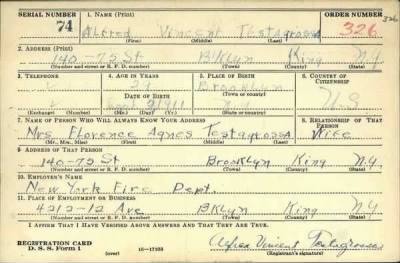 SERIAL NUMBER 1. NAME (Print) ORDER NUMBER
74 Alfred Vincent Testagrossa 326 326
(First) (Middle) (Last)
2. ADDRESS (Print)
140-75 St Bklyn King N.Y.
(Number and street or R. F. D. number) (Town) (County) (State)
3. TELEPHONE 4. AGE IN YEARS 5. PLACE OF BIRTH 6. COUNTRY OF CITIZENSHIP
Brooklyn
DATE OF BIRTH (Town or county)
1911 N.Y. U.S.
(Exchange) (Number) (Mo.) (Day) (Yr.) (State or country)
7. NAME OF PERSON WHO WILL ALWAYS KNOW YOUR ADDRESS 8. RELATIONSHIP OF THAT PERSON
Mrs Florence Agnes Testagrossa Wife
(Mr., Mrs., Miss) (First) (Middle) (Last)
9. ADDRESS OF THAT PERSON
140-75 St Brooklyn King N.Y.
(Number and street or R. F. D. number) (Town) (County) (State)
10. EMPLOYER'S NAME
New York Fire Dept.
11. PLACE OF EMPLOYMENT OR BUSINESS
4212-12 Ave Bklyn King N.Y.
(Number and street or R. F. D. number) (Town) (County) (State)
I AFFIRM THAT I HAVE VERIFIED ABOVE ANSWERS AND THAT THEY ARE TRUE.
REGISTRATION CARD
D. S. S. FORM 1 (over) 16-17105 Alfred Vincent Testagrossa
(Registrant's signature)